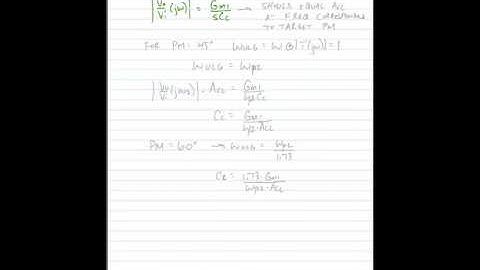 |Vo/Vi (jω)| = Gm1/SCc → SHOULD EQUAL ACL
@ FREQ CORRESPONDING
TO TARGET PM
FOR PM = 45° ωULG = ω @ | (jω)| = 1
ωULG = ωp2
|Vo/Vi (jω)| = ACL = Gm1/ωp2Cc
Cc = Gm1/ωp2·ACL
PM = 60° → ωULG = ωp2/1.73
Cc = 1.73·Gm1/ωp2·ACL